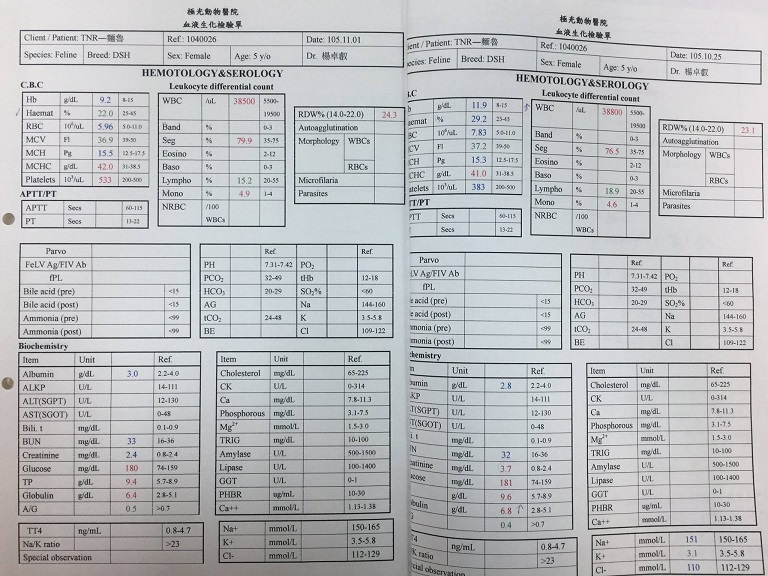 極光動物醫院
血液生化檢驗單
Client / Patient: TNR—麵魯 Ref.: 1040026 Date: 105.11.01
Species: Feline Breed: DSH Sex: Female Age: 5 y/o Dr. 楊卓叡
HEMOTOLOGY&SEROLOGY
C.B.C Leukocyte differential count
Hb g/dL 9.2 8-15
Haemat % 22.0 25-45
RBC 10⁶/uL 5.96 5.0-11.0
MCV Fl 36.9 39-50
MCH Pg 15.5 12.5-17.5
MCHC g/dL 42.0 31-38.5
Platelets 10³/uL 533 200-500
WBC /uL 38500 5500-19500
Band % 0-3
Seg % 79.9 35-75
Eosino % 2-12
Baso % 0-3
Lympho % 15.2 20-55
Mono % 4.9 1-4
NRBC /100 WBCs
RDW% (14.0-22.0) 24.3
Autoagglutination
Morphology WBCs
RBCs
Microfilaria
Parasites
APTT/PT
APTT Secs 60-115
PT Secs 13-22
Parvo
FeLV Ag/FIV Ab
fPL
Bile acid (pre) <15
Bile acid (post) <15
Ammonia (pre) <99
Ammonia (post) <99
Ref. Ref.
PH 7.31-7.42 PO₂
PCO₂ 32-49 tHb 12-18
HCO₃ 20-29 SO₂% <60
AG Na 144-160
tCO₂ 24-48 K 3.5-5.8
BE Cl 109-122
Biochemistry
Item Unit Ref.
Albumin g/dL 3.0 2.2-4.0
ALKP U/L 14-111
ALT(SGPT) U/L 12-130
AST(SGOT) U/L 0-48
Bili. t mg/dL 0.1-0.9
BUN mg/dL 33 16-36
Creatinine mg/dL 2.4 0.8-2.4
Glucose mg/dL 180 74-159
TP g/dL 9.4 5.7-8.9
Globulin g/dL 6.4 2.8-5.1
A/G 0.5 >0.7
Item Unit Ref.
Cholesterol mg/dL 65-225
CK U/L 0-314
Ca mg/dL 7.8-11.3
Phosphorous mg/dL 3.1-7.5
Mg²⁺ mmol/L 1.5-3.0
TRIG mg/dL 10-100
Amylase U/L 500-1500
Lipase U/L 100-1400
GGT U/L 0-1
PHBR ug/mL 10-30
Ca++ mmol/L 1.13-1.38
TT4 ng/mL 0.8-4.7
Na/K ratio >23
Special observation
Na+ mmol/L 150-165
K+ mmol/L 3.5-5.8
Cl- mmol/L 112-129
極光動物醫院
血液生化檢驗單
ient / Patient: TNR—麵魯 Ref.: 1040026 Date: 105.10.25
ecies: Feline Breed: DSH Sex: Female Age: 5 y/o Dr. 楊卓叡
HEMOTOLOGY&SEROLOGY
.C Leukocyte differential count
b g/dL 11.9 8-15
aemat % 29.2 25-45
BC 10⁶/uL 7.83 5.0-11.0
CV Fl 37.2 39-50
CH Pg 15.3 12.5-17.5
CHC g/dL 41.0 31-38.5
atelets 10³/uL 383 200-500
WBC /uL 38800 5500-19500
Band % 0-3
Seg % 76.5 35-75
Eosino % 2-12
Baso % 0-3
Lympho % 18.9 20-55
Mono % 4.6 1-4
NRBC /100 WBCs
RDW% (14.0-22.0) 23.1
Autoagglutination
Morphology WBCs
RBCs
Microfilaria
Parasites
TT/PT
PTT Secs 60-115
Secs 13-22
Parvo
LV Ag/FIV Ab
fPL
e acid (pre) <15
e acid (post) <15
mmonia (pre) <99
mmonia (post) <99
Ref. Ref.
PH 7.31-7.42 PO₂
PCO₂ 32-49 tHb 12-18
HCO₃ 20-29 SO₂% <60
AG Na 144-160
tCO₂ 24-48 K 3.5-5.8
BE Cl 109-122
chemistry
m Unit Ref.
bumin g/dL 2.8 2.2-4.0
KP U/L 14-111
T(SGPT) U/L 12-130
T(SGOT) U/L 0-48
i. t mg/dL 0.1-0.9
N mg/dL 32 16-36
eatinine mg/dL 3.7 0.8-2.4
ucose mg/dL 181 74-159
g/dL 9.6 5.7-8.9
obulin g/dL 6.8 2.8-5.1
0.4 >0.7
Item Unit Ref.
Cholesterol mg/dL 65-225
CK U/L 0-314
Ca mg/dL 7.8-11.3
Phosphorous mg/dL 3.1-7.5
Mg²⁺ mmol/L 1.5-3.0
TRIG mg/dL 10-100
Amylase U/L 500-1500
Lipase U/L 100-1400
GGT U/L 0-1
PHBR ug/mL 10-30
Ca++ mmol/L 1.13-1.38
TT4 ng/mL 0.8-4.7
K ratio >23
ecial observation
Na+ mmol/L 151 150-165
K+ mmol/L 3.1 3.5-5.8
Cl- mmol/L 110 112-129